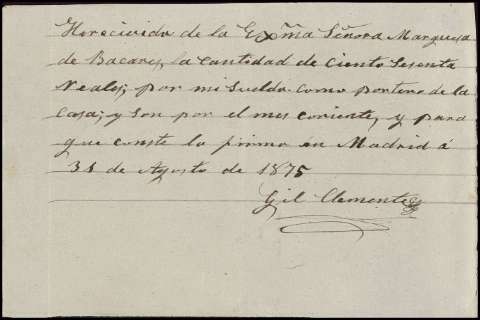 He recivido de la Exm̃a Señora Marquesa
de Bacares, la Cantidad de Ciento Sesenta
Reales; por mi Sueldo como portero de la
Casa; y son por el mes coriente, y para
que conste lo firmo en Madrid á
31 de Agosto de 1875
Gil Clemente